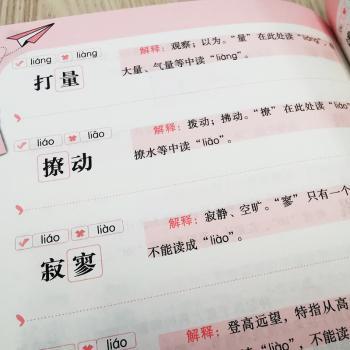 liáng liàng
打量
解释：观察；以为。“量”在此处读“liáng”，
大量、气量等中读“liàng”。
liáo liāo
撩动
解释：拨动；拂动。“撩”在此处读“liáo”
撩水等中读“liāo”。
liáo liào
寂寥
解释：寂静、空旷。“寥”只有一个
不能读成“liào”。
解释：登高远望，特指从高